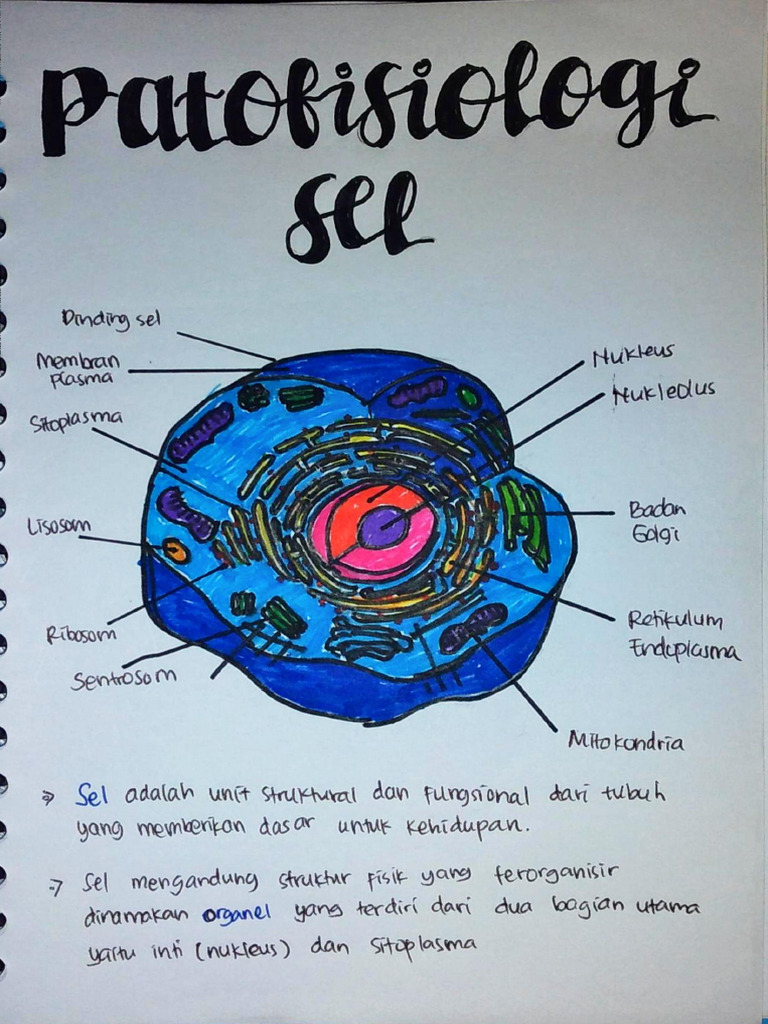 Patofisiologi
Sel
Dinding sel
Membran
plasma
Sitoplasma
Lisosom
Ribosom
Sentrosom
Nukleus
Nukleolus
Badan
Golgi
Retikulum
Endoplasma
Mitokondria
⇒ Sel adalah unit struktural dan fungsional dari tubuh
yang memberikan dasar untuk kehidupan.
→ Sel mengandung struktur fisik yang terorganisir
dinamakan organel yang terdiri dari dua bagian utama
yaitu inti (nukleus) dan sitoplasma